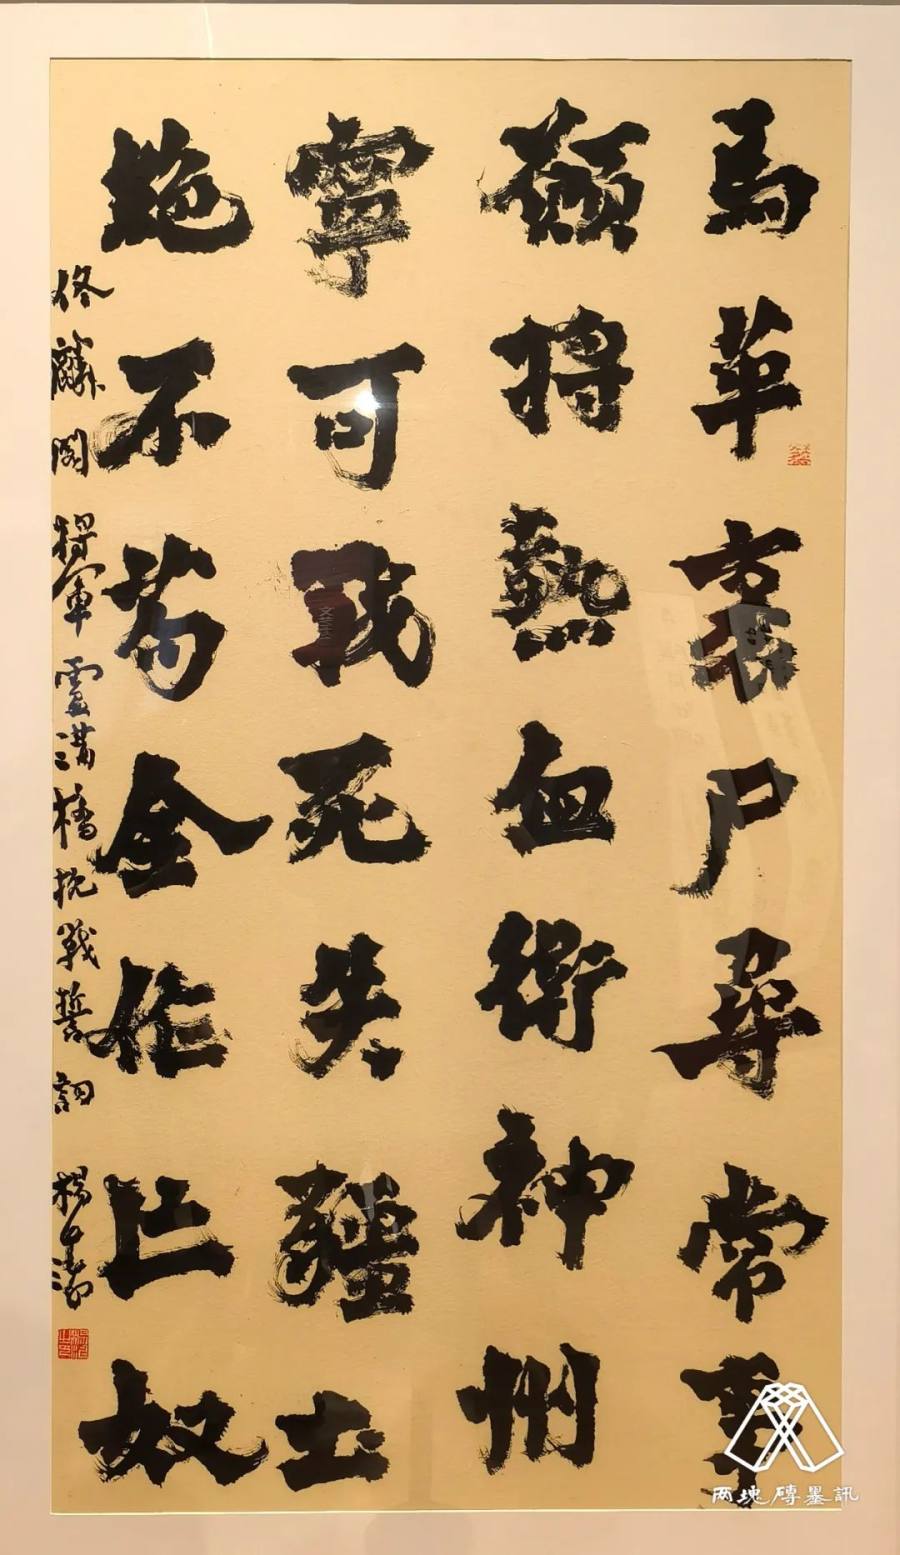 馬革裹尸尋常事
願將熱血衛神州
寧可戰死失疆土
絕不苟全作亡奴
佟麟閣將軍盧溝橋抗戰誓詞 楊
两塊磚墨訊